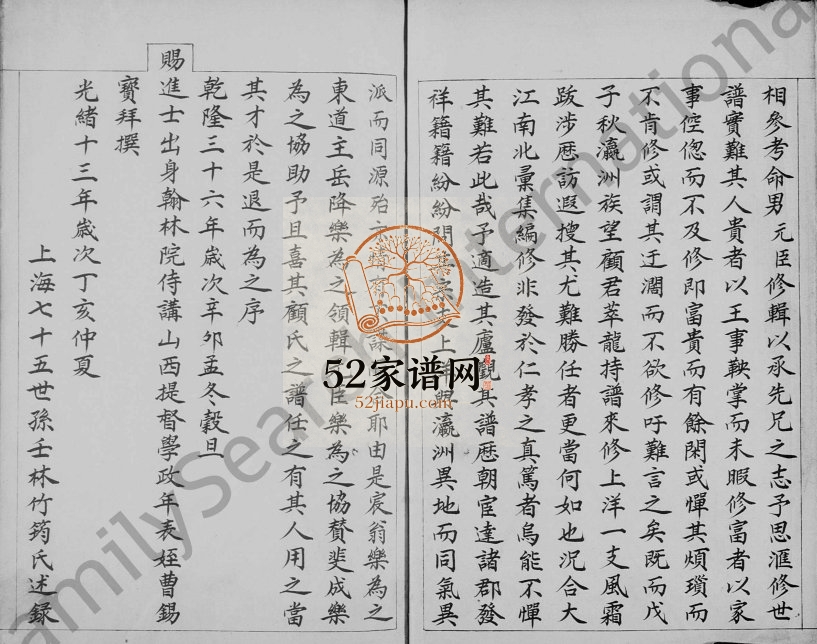 相參考命男元臣修輯以承先兄之志予思滙修世
譜實難其人貴者以王事鞅掌而未暇修富者以家
事倥偬而不及修即富貴而有餘閑或憚其煩瑣而
不肯修或謂其迂濶而不欲修吁難言之矣既而戊
子秋瀛洲族望顧君萃龍持譜來修上洋一支風霜
跋涉歷訪遐搜其尤難勝任者更當何如也況合大
江南北彙集編修非發於仁孝之真篤者烏能不憚
其難若此哉予適造其廬觀其譜歷朝宦達諸郡發
祥籍籍紛紛間其宗支上洋與瀛洲異地而同氣異
派而同源殆亦耶由是宸翁樂為之
東道主岳降樂為之領輯臣樂為之協贊斐成樂
為之協助予且喜其顧氏之譜任之有其人用之當
其才於是退而為之序
乾隆三十六年歲次辛卯孟冬穀旦
賜進士出身翰林院侍講山西提督學政年表姪曹錫
寶拜撰
光緒十三年歲次丁亥仲夏
上海七十五世孫壬林竹筠氏述錄
52家谱网
52jiapu.com
FamilySearch International